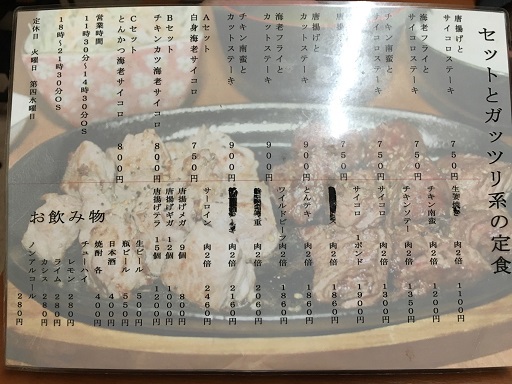 セットとガッツリ系の定食
唐揚げと
サイコロステーキ 750円
海老フライと
サイコロステーキ 750円
チキン南蛮と
サイコロステーキ 750円
唐揚げと
カットステーキ 900円
海老フライと
カットステーキ 900円
チキン南蛮と
カットステーキ 900円
Aセット
白身海老サイコロ 750円
Bセット
チキンカツ海老サイコロ 800円
Cセット
とんかつ海老サイコロ 800円
営業時間
11時30分~14時30分OS
18時~21時30分OS
定休日 火曜日 第四水曜日
生姜焼き 肉2倍 1100円
チキン南蛮 肉2倍 1200円
チキンソテー 肉2倍 1350円
サイコロ 肉2倍 1400円
サイコロ 1ポンド 1900円
肉2倍
とんテキ 肉2倍 1860円
ワイルドビーフ 肉2倍 1860円
重 肉2倍 2060円
肉2倍 2160円
サーロイン 肉2倍 2460円
唐揚げメガ 9個
唐揚げギガ 12個 1000円
唐揚げテラ 15個 1200円
お飲み物
生ビール 500円
瓶ビール 550円
日本酒 400円
焼酎 各 400円
チューハイ
レモン 280円
ライム 280円
カシス 280円
ノンアルコール 280円